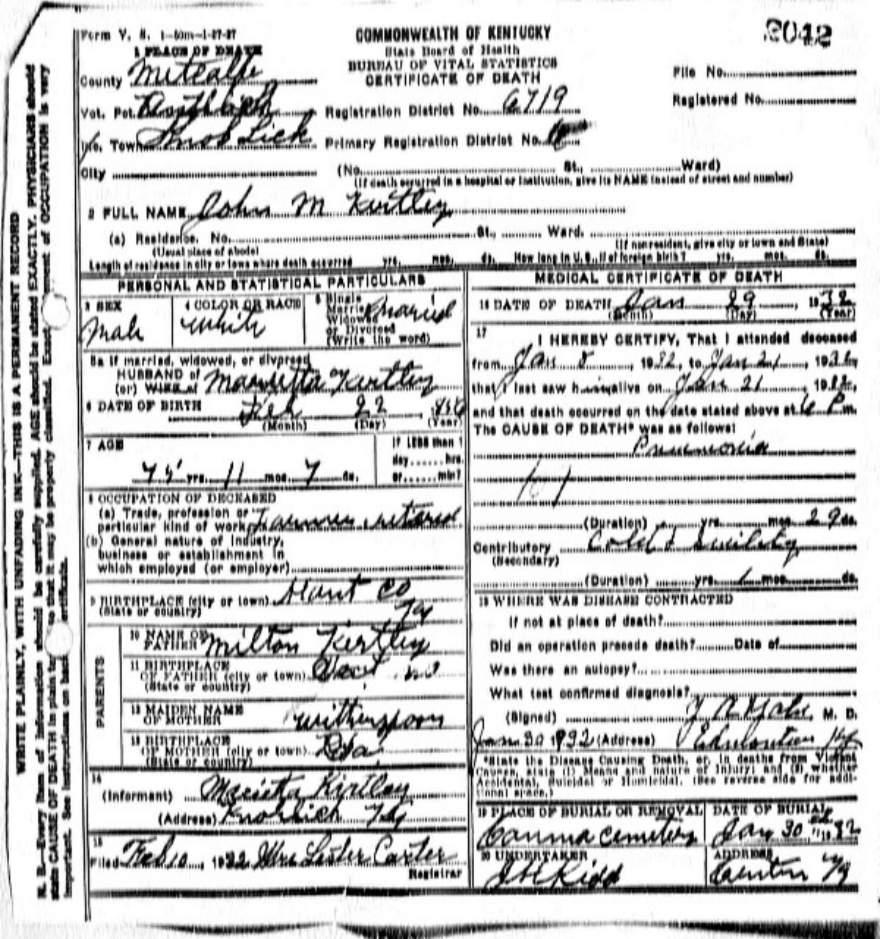 Form V. S. 1-50m-1-27-27
COMMONWEALTH OF KENTUCKY
State Board of Health
BUREAU OF VITAL STATISTICS
CERTIFICATE OF DEATH
2042
1 PLACE OF DEATH
County Metcalfe
File No.
Vot. Pct.
Registration District No. 6719
Registered No.
Inc. Town Knob Lick
Primary Registration District No.
City
(No. St., Ward)
(If death occurred in a hospital or institution, give its NAME instead of street and number)
2 FULL NAME John M Kirtley
(a) Residence. No. St., Ward.
(Usual place of abode)
(If nonresident, give city or town and State)
Length of residence in city or town where death occurred yrs. mos. ds. How long in U. S., if of foreign birth? yrs. mos. ds.
PERSONAL AND STATISTICAL PARTICULARS
3 SEX
Male
4 COLOR OR RACE
White
5 Single
Married
Widowed
or Divorced
(Write the word)
Married
5a If married, widowed, or divorced
HUSBAND of
(or) WIFE of
Kirtley
6 DATE OF BIRTH Feb 22
(Month) (Day) (Year)
7 AGE
75 yrs. 11 mos. 7 ds.
If LESS than 1
day, hrs.
or min?
8 OCCUPATION OF DECEASED
(a) Trade, profession or
particular kind of work Farmer retired
(b) General nature of industry,
business or establishment in
which employed (or employer)
9 BIRTHPLACE (city or town) Co
(State or country) Ky
PARENTS
10 NAME OF
FATHER Milton Kirtley
11 BIRTHPLACE
OF FATHER (city or town)
(State or country)
12 MAIDEN NAME
OF MOTHER Witherspoon
13 BIRTHPLACE
OF MOTHER (city or town)
(State or country)
14
(Informant) Kirtley
(Address) Ky
15
Filed Feb 10, 1932 Mrs Lester Carter
Registrar
MEDICAL CERTIFICATE OF DEATH
16 DATE OF DEATH Jan 29, 1932
(Month) (Day) (Year)
17
I HEREBY CERTIFY, That I attended deceased
from Jan 8, 1932, to Jan 21, 193
that I last saw him alive on Jan 21, 193
and that death occurred on the date stated above at 6 P m.
The CAUSE OF DEATH* was as follows:
Pneumonia
(Duration) yrs. mos. 29 ds.
Contributory Cold &
(Secondary)
(Duration) yrs. 1 mos. ds.
18 WHERE WAS DISEASE CONTRACTED
If not at place of death?
Did an operation precede death? Date of
Was there an autopsy?
What test confirmed diagnosis?
(Signed) M. D.
Jan 30 1932 (Address) Edmonton Ky
*State the Disease Causing Death, or, in deaths from Violent
Causes, state (1) Means and nature of Injury; and (2) whether
Accidental, Suicidal or Homicidal. (See reverse side for additional space.)
19 PLACE OF BURIAL OR REMOVAL
cemetery
DATE OF BURIAL
Jan 30th 1932
20 UNDERTAKER
Kidd
ADDRESS
Ky
WRITE PLAINLY, WITH UNFADING INK—THIS IS A PERMANENT RECORD
N. B.—Every item of information should be carefully supplied. AGE should be stated EXACTLY. PHYSICIANS should
state CAUSE OF DEATH in plain terms so that it may be properly classified. Exact statement of OCCUPATION is very
important. See instructions on back of certificate.